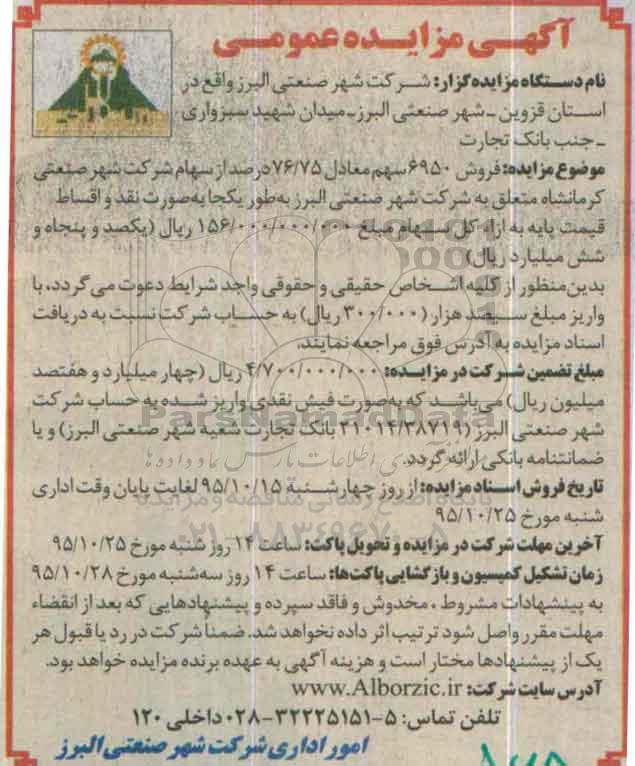 آگهی مزایده عمومی
نام دستگاه مزایده گزار: شرکت شهر صنعتی البرز واقع در
استان قزوین - شهر صنعتی البرز - میدان شهید سبزواری
- جنب بانک تجارت
موضوع مزایده: فروش ۶۹۵۰ سهم معادل ۷۶/۷۵ درصد از سهام شرکت شهر صنعتی
کرمانشاه متعلق به شرکت شهر صنعتی البرز به‌طور یکجا به‌صورت نقد و اقساط
قیمت پایه به ازاء کل سهام مبلغ ۱۵۶/۰۰۰/۰۰۰/۰۰۰ ریال (یکصد و پنجاه و
شش میلیارد ریال)
بدین‌منظور از کلیه اشخاص حقیقی و حقوقی واجد شرایط دعوت می‌گردد، با
واریز مبلغ سیصد هزار (۳۰۰/۰۰۰ ریال) به حساب شرکت نسبت به دریافت
اسناد مزایده به آدرس فوق مراجعه نمایند.
مبلغ تضمین شرکت در مزایده: ۴/۷۰۰/۰۰۰/۰۰۰ ریال (چهار میلیارد و هفتصد
میلیون ریال) می‌باشد که به‌صورت فیش نقدی واریز شده به حساب شرکت
شهر صنعتی البرز (۲۱۰۱۴/۳۸۷۱۹ بانک تجارت شعبه شهر صنعتی البرز) و یا
ضمانتنامه بانکی ارائه گردد.
تاریخ فروش اسناد مزایده: از روز چهارشنبه ۹۵/۱۰/۱۵ لغایت پایان وقت اداری
شنبه مورخ ۹۵/۱۰/۲۵
آخرین مهلت شرکت در مزایده و تحویل پاکت: ساعت ۱۴ روز شنبه مورخ ۹۵/۱۰/۲۵
زمان تشکیل کمیسیون و بازگشایی پاکت‌ها: ساعت ۱۴ روز سه‌شنبه مورخ ۹۵/۱۰/۲۸
به پیشنهادات مشروط، مخدوش و فاقد سپرده و پیشنهادهایی که بعد از انقضاء
مهلت مقرر واصل شود ترتیب اثر داده نخواهد شد. ضمناً شرکت در رد یا قبول هر
یک از پیشنهادها مختار است و هزینه آگهی به عهده برنده مزایده خواهد بود.
آدرس سایت شرکت: www.Alborzic.ir
تلفن تماس: ۵-۳۲۲۲۵۱۵۱-۰۲۸ داخلی ۱۲۰
امور اداری شرکت شهر صنعتی البرز
ParsNamadData
پایگاه اطلاع رسانی مناقصه و مزایده
۰۲۱-۸۸۳۴۹۶۷۰-۵